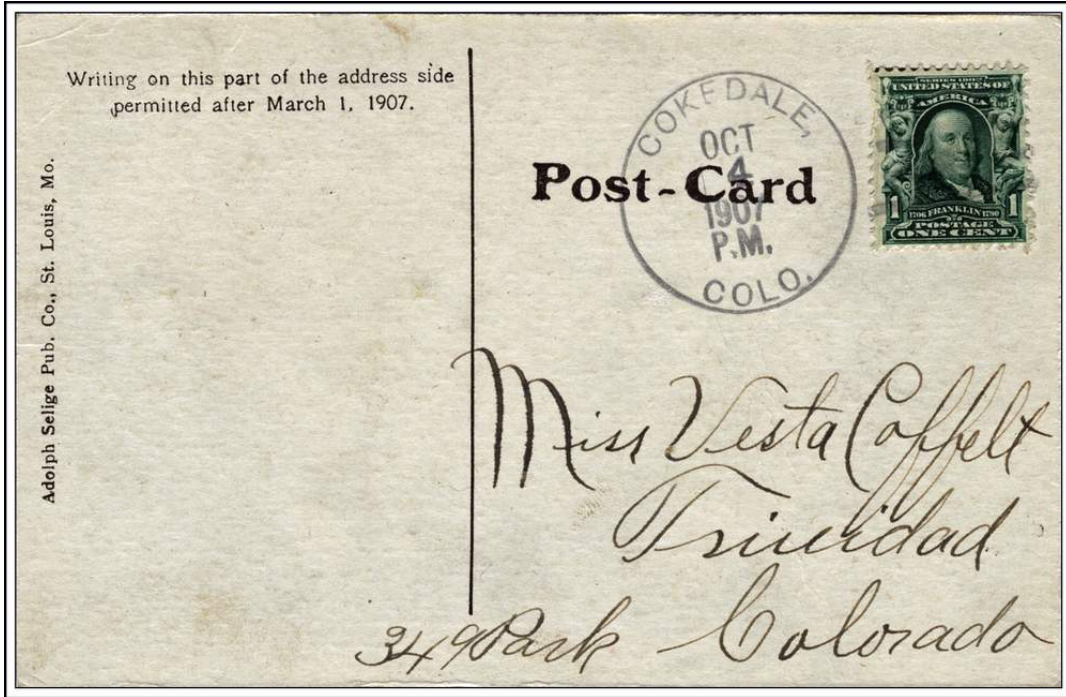 Writing on this part of the address side
permitted after March 1, 1907.
Adolph Selige Pub. Co., St. Louis, Mo.
Post-Card
COKEDALE,
OCT
4
1907
P.M.
COLO.
SERIES 1902
UNITED STATES OF
AMERICA
1706 FRANKLIN 1790
1 1
POSTAGE
ONE CENT
Miss Vesta Coffelt
Trinidad
Colorado
349 Park